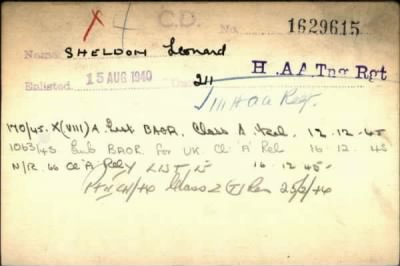 X 4 C.D. No. 1629615
Name SHELDON Leonard
Enlisted 15 AUG 1940 211 H.A.A Tng Rgt
111 HAA Regt.
170/45. X(VIII) A. Emb BAOR. Class A Rel. 12-12-45
1063/45 Emb BAOR for UK Cl 'A' Rel 16.12.45
N/R. 66 Cl 'A' Rely LIST 16-12-45
Class Z (T) Res 25/2/46